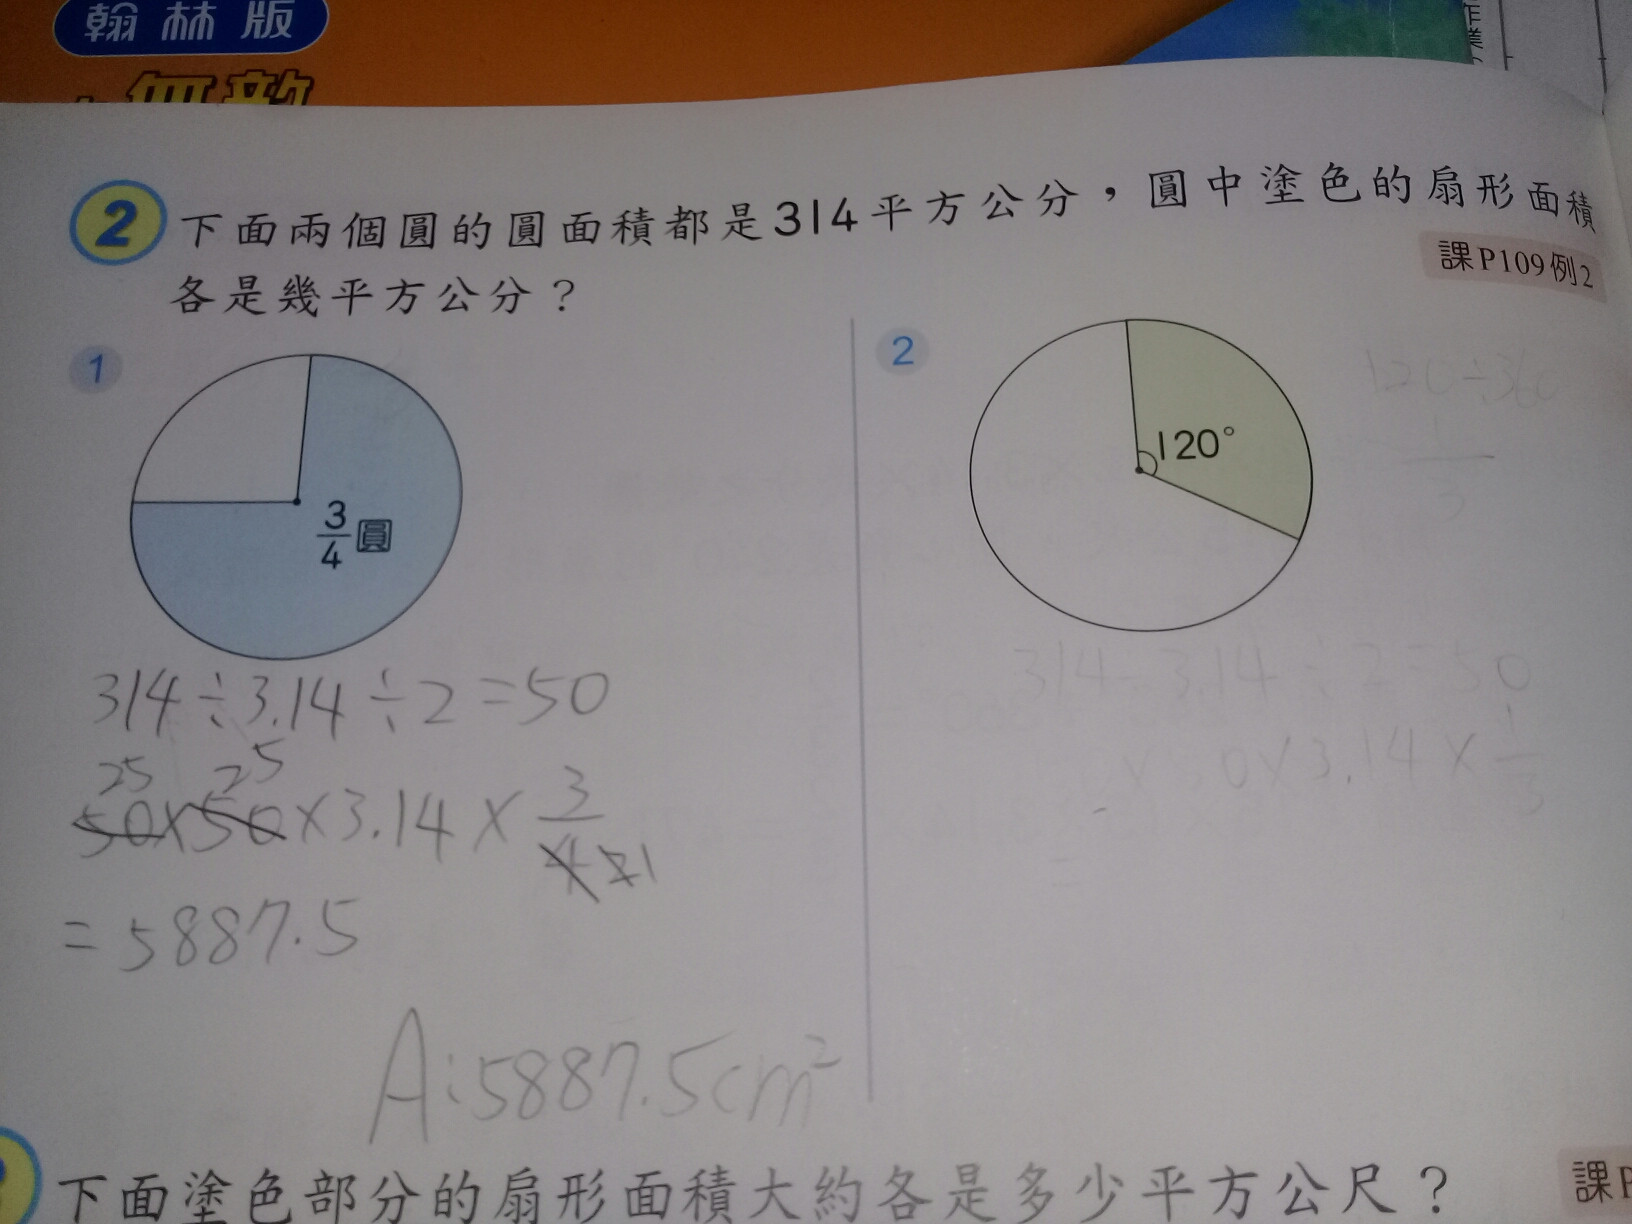 翰林版
2 下面兩個圓的圓面積都是314平方公分，圓中塗色的扇形面積
各是幾平方公分？
課P109例2
1
3/4圓
314÷3.14÷2=50
25 25
50×50×3.14×3/4 2 1
=5887.5
A:5887.5cm²
2
120°
120÷360
1/3
314÷3.14÷2=50
0×3.14×1/3
=
下面塗色部分的扇形面積大約各是多少平方公尺？
課P